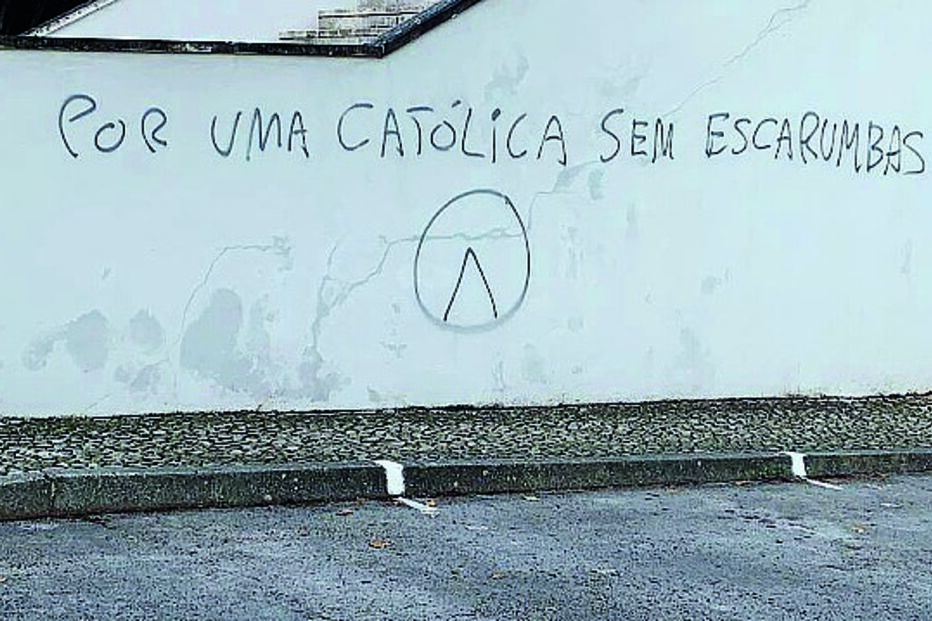 POR UMA CATÓLICA SEM ESCARUMBAS